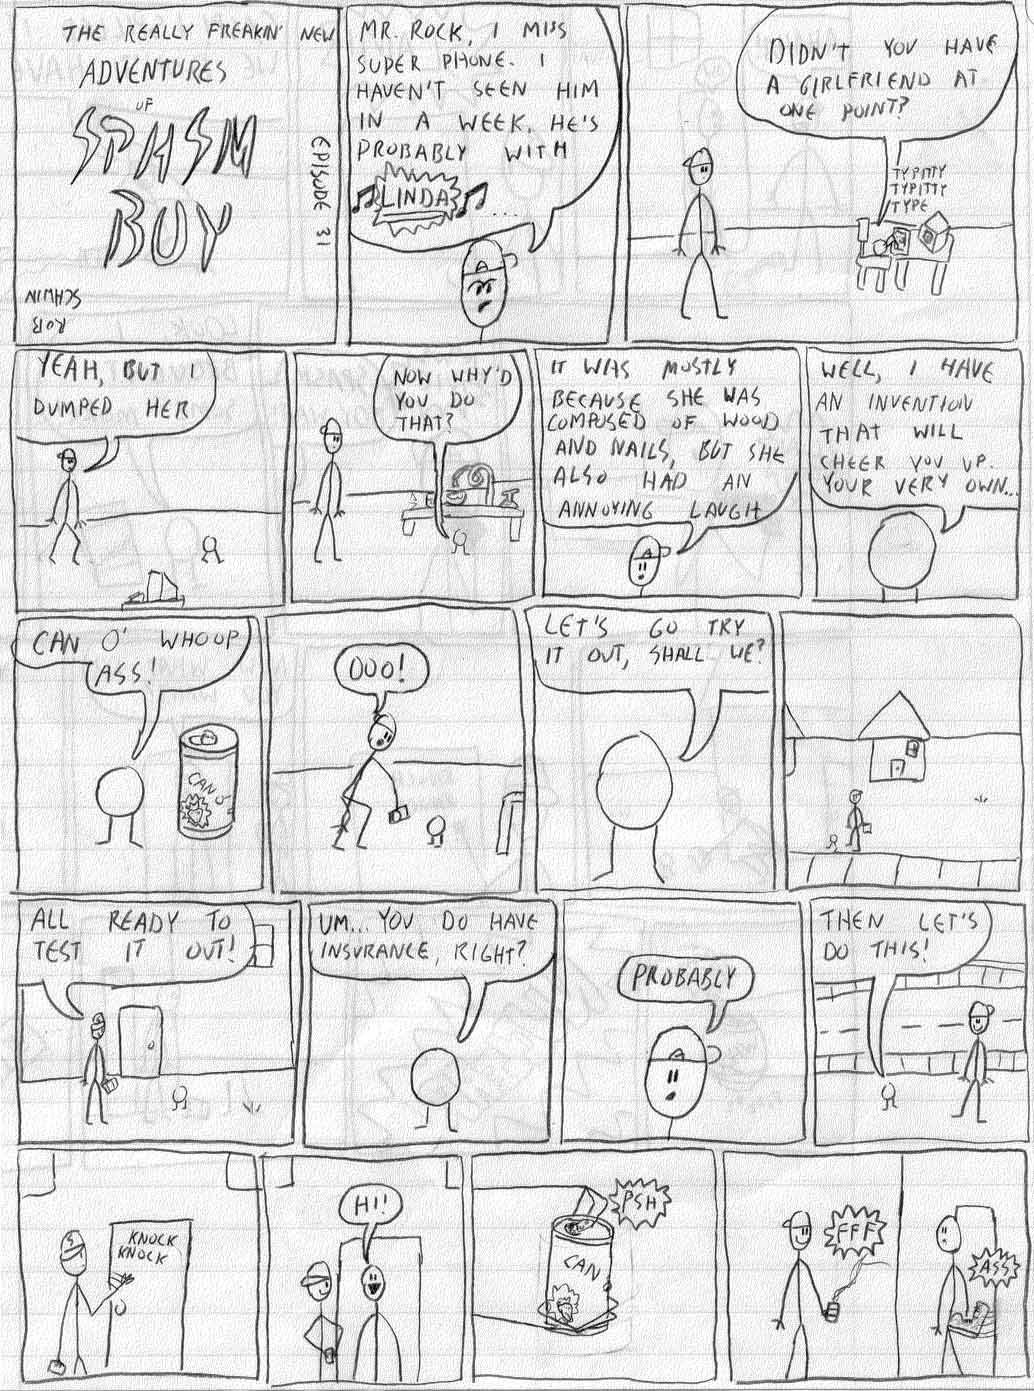 THE REALLY FREAKIN' NEW
ADVENTURES
OF
SPASM
BUY
EPISODE 31
ROB
SCHWIN
MR. ROCK, I MISS
SUPER PHONE. I
HAVEN'T SEEN HIM
IN A WEEK. HE'S
PROBABLY WITH
♫LINDA♫...
DIDN'T YOU HAVE
A GIRLFRIEND AT
ONE POINT?
TYPITTY
TYPITTY
TYPE
YEAH, BUT I
DUMPED HER
NOW WHY'D
YOU DO
THAT?
IT WAS MOSTLY
BECAUSE SHE WAS
COMPOSED OF WOOD
AND NAILS, BUT SHE
ALSO HAD AN
ANNOYING LAUGH
WELL, I HAVE
AN INVENTION
THAT WILL
CHEER YOU UP.
YOUR VERY OWN...
CAN O' WHOOP
ASS!
CAN O'
OOO!
LET'S GO TRY
IT OUT, SHALL WE?
ALL READY TO
TEST IT OUT!
UM... YOU DO HAVE
INSURANCE, RIGHT?
PROBABLY
THEN LET'S
DO THIS!
KNOCK
KNOCK
HI!
PSH
CAN
FFF
ASS